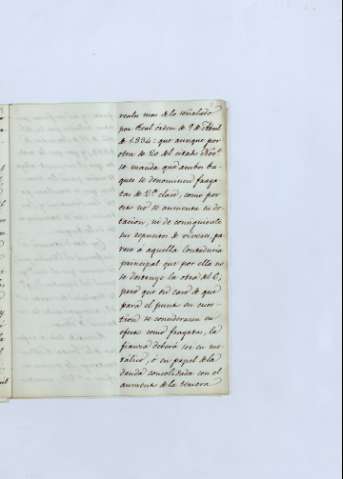 reales mas de lo señalado
por Real órden de 9 de Abril
de 1834: que aunque por
otra de 20 del citado
se manda que ambos bu
ques se denominen fraga
tas de 2ª clase, como por
esto no se aumenta su do
tacion, ni de consiguiente
sus repuestos de viveres, pa
rece á aquella Contaduría
principal que por ella no
se destruye la otra del 6,
pero que en caso de que
para el punto en cues
tion se consideracen en
efecto como fragatas, la
fianza deberá ser en me
talico, ó en papel de la
deuda consolidada con el
aumento de la tercera